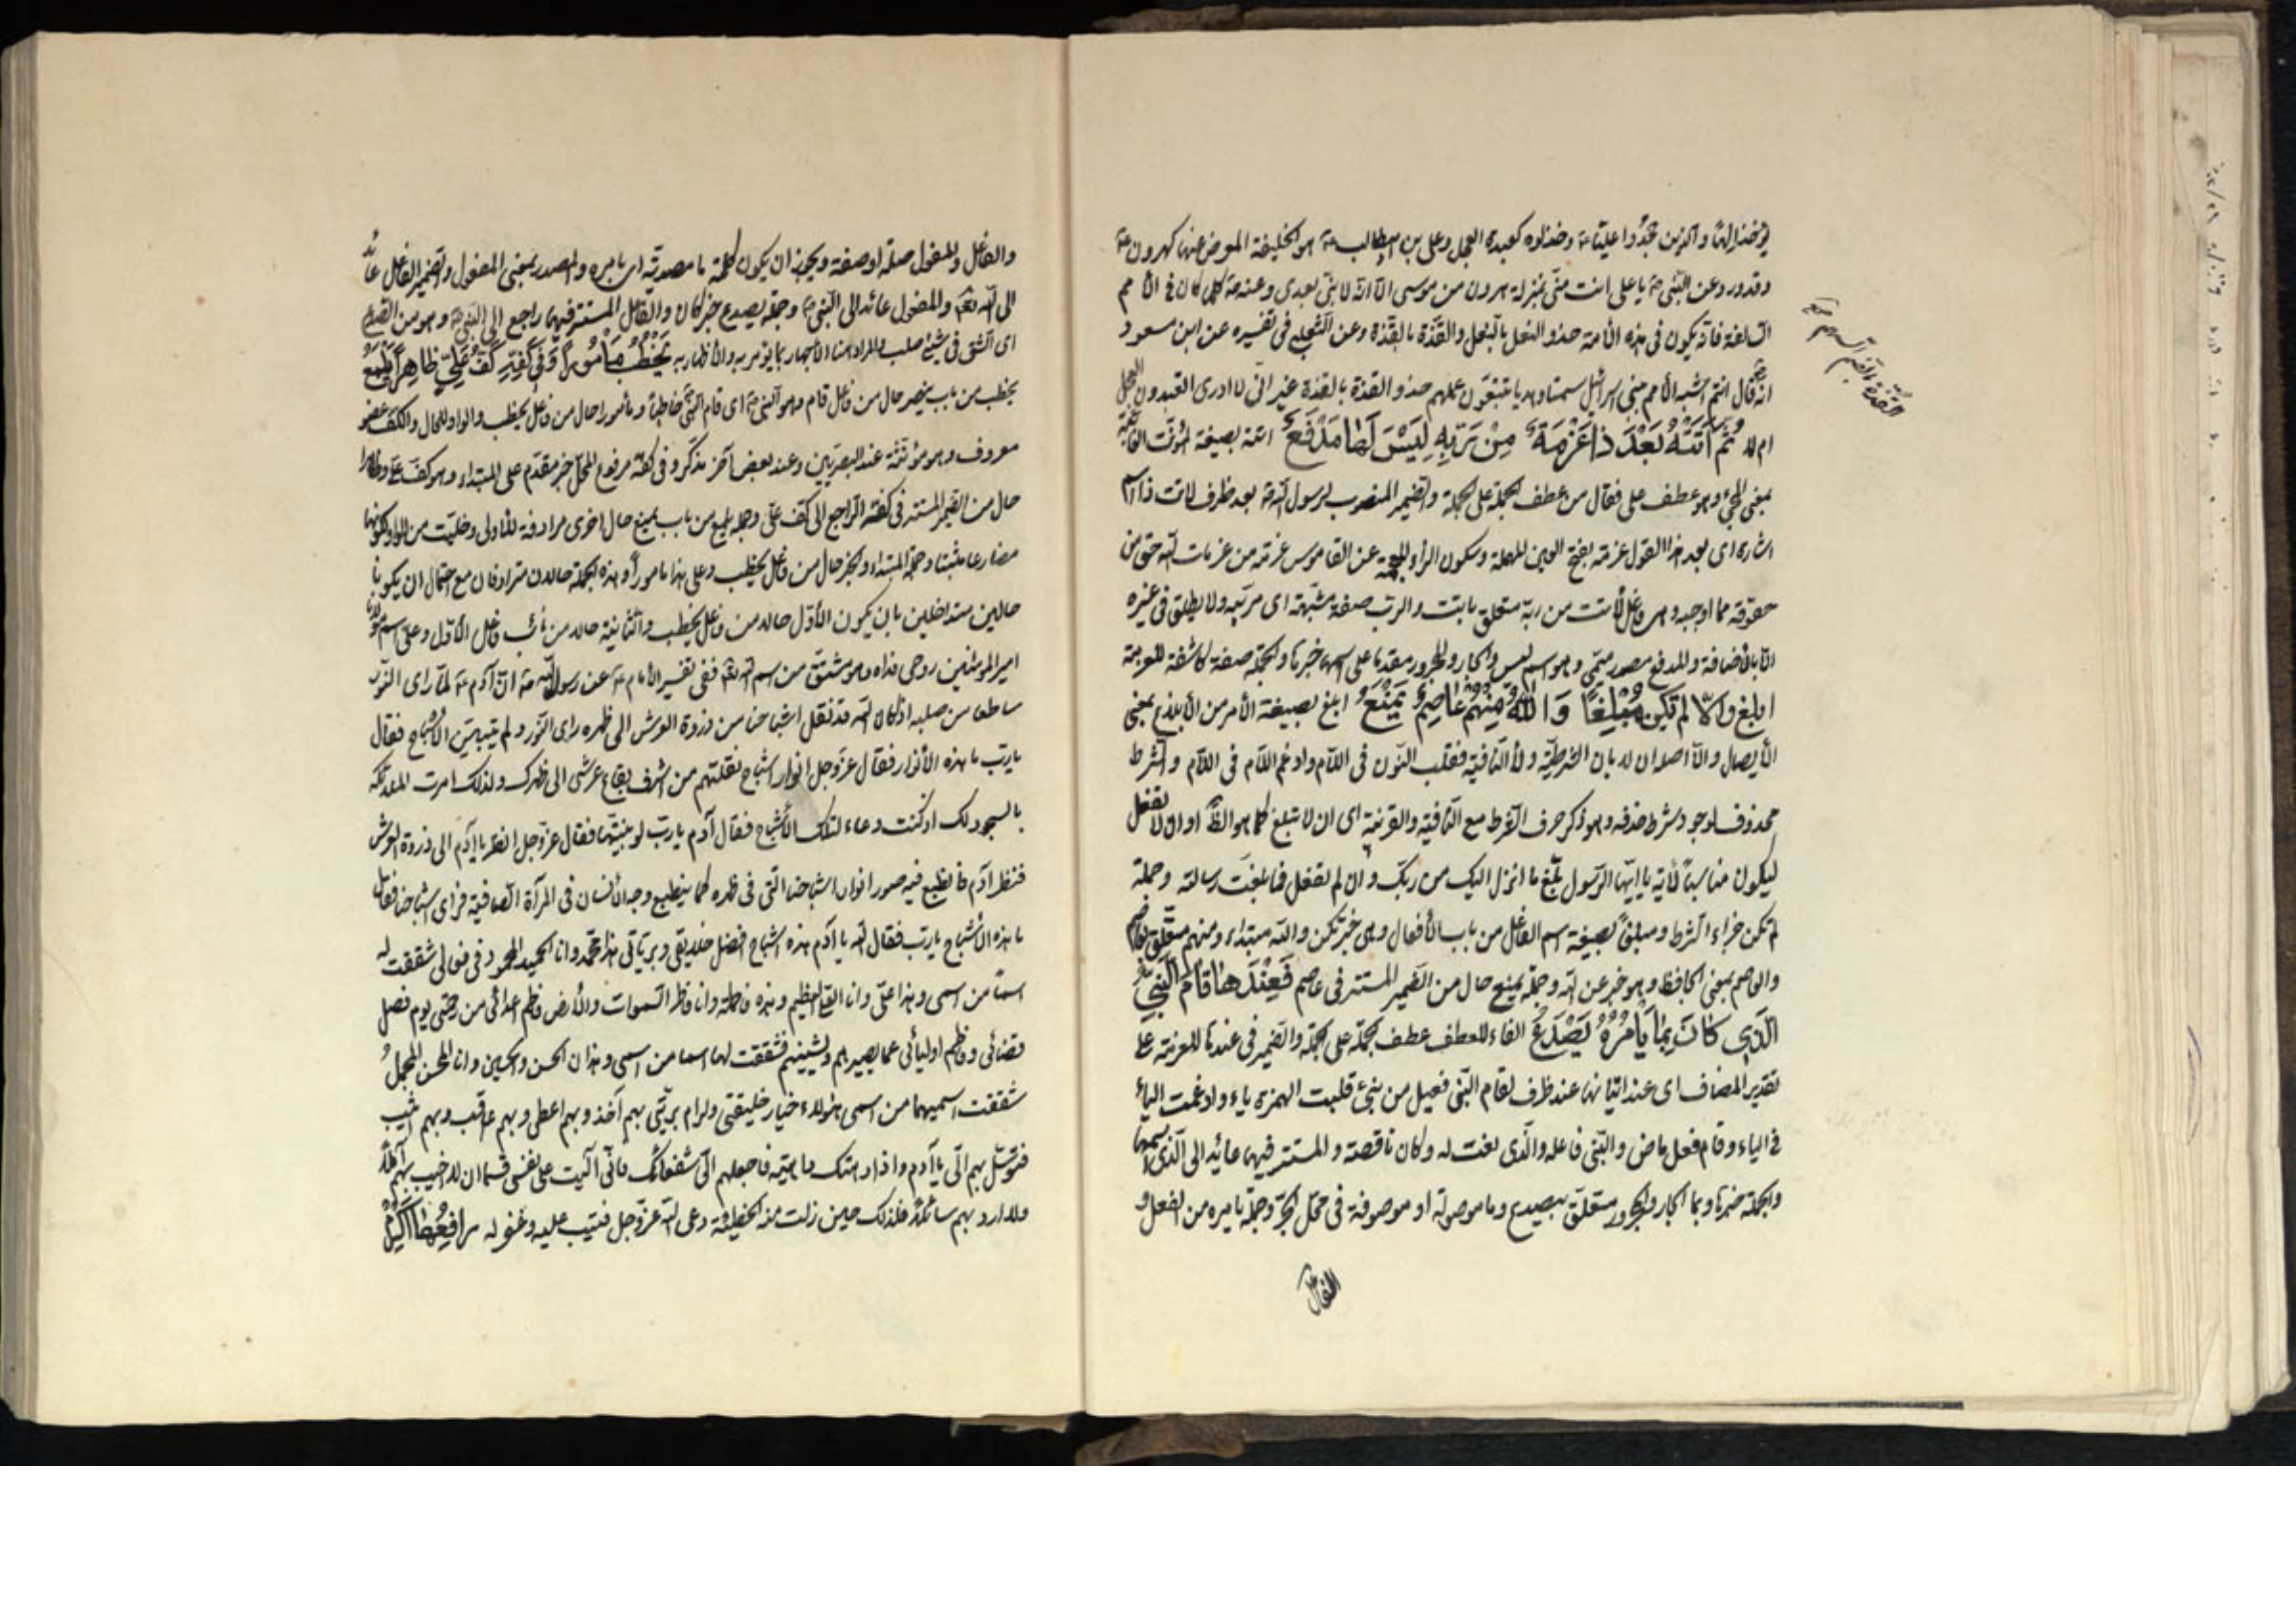 والذين عبدوا علياً وخذلوه كعبدة العجل وعلى بن ابيطالب هو الخليفة المعوض عنها كهرون
وقد ورد عن النبى يا على انت منى بمنزلة هرون من موسى الا انه لا نبى بعدى وعنه كلما كان فى الامم
السالفة فانه يكون فى هذه الامة حذو النعل بالنعل والقذة بالقذة وعن الثعلبى فى تفسيره عن ابن مسعود
انه قال انتم اشبه الامم ببنى اسرائيل سمتا وهديا تتبعون عملهم حذو القذة بالقذة غير انى لا ادرى اتعبدون العجل
ام لا ثُمَّ اَتَتْهُ بَعْدَ ذا عَزْمَةٌ مِنْ رَبِّهِ لَيْسَ لَها مَدْفَعٌ اتته بصيغة المؤنث الغائبة
بمعنى المجئ وهو عطف على فقال من عطف الجملة على الجملة والضمير المنصوب لرسول الله بعد ظرف لاتت ذا اسم
اشارة اى بعد هذا القول عزمة بفتح العين المهملة وسكون الزاء المعجمة عن القاموس عزمة من عزمات الله حق من
حقوقه مما اوجبه وهى فاعل لأتت من ربه متعلق باتت والرب صفة مشبهة اى مربّيه ولا يطلق فى غيره
الا بالأضافة والمدفع مصدر ميمى وهو اسم ليس والجار والمجرور مقدما على اسمها خبرها والجملة صفة كاشفة للعزمة
اَبلِغ وَاِلّا لَم تَكُن مُبْلِغًا وَاللهُ مِنْهُم عاصِمٌ يَمْنَعُ ابلغ بصيغة الأمر من الأبلاغ بمعنى
الأيصال والا اصلها ان لا بان الشرطية ولا النافية فقلب النون فى اللام وادغم اللام فى اللام والشرط
محذوف لوجود شرط حذفه وهو ذكر حرف الشرط مع النافية والقرينة اى ان لا تبلغ كما هو الظ او ان لا تفعل
ليكون مناسبا للآية يا ايها الرسول بلغ ما انزل اليك من ربك وان لم تفعل فما بلغت رسالته وجملة
لم تكن جزاء الشرط ومبلغاً بصيغة اسم الفاعل من باب الأفعال وهى خبر تكن والله مبتداء ومنهم متعلق بعاصم
والعاصم بمعنى الحافظ وهو خبر عن الله وجملة يمنع حال من الضمير المستتر فى عاصم فَعِنْدَها قامَ النَّبِىُّ
الَّذِى كانَ بِما يَأْمُرُهُ يَصْدَعُ الفاء للعطف عطف الجملة على الجملة والضمير فى عندها للعزمة على
تقدير المضاف اى عند اتيانها عند ظرف لقام النبى فعيل من نبئ قلبت الهمزة ياء وادغمت الياء
فى الياء وقام فعل ماض والنبى فاعله والذى نعت له وكان ناقصة والمستتر فيها عائد الى الذى اسمها
والجملة خبرها وبما الجار والمجرور متعلق بيصدع وما موصولة او موصوفة فى محل الجر وجملة يامره من الفعل و
الفاعل
والفاعل والمفعول صلة او صفة ويجوز ان يكون كلمة ما مصدرية اى بامره والمصدر بمعنى المفعول والضمير الفاعل عائد
الى الله تعالى والمفعول عائد الى النبى وجملة يصدع خبر كان والفاعل المستتر فيها راجع الى النبى وهو من الصدع
اى الشق فى شيئ صلب والمراد هنا الأجهار بما يؤمر به والأظهار به يَخْطُبُ مَأْمُورًا وَفى كَفِّهِ كَفُّ عَلِىٍّ ظاهِرًا يَلْمَعُ
يخطب من باب ينصر حال من فاعل قام وهو النبى اى قام النبى خاطبا ومأمورا حال من فاعل يخطب والواو للحال والكف عضو
معروف وهو مؤنثة عند البصريين وعند بعض آخر مذكر وفى كفه مرفوع المحل خبر مقدم على المبتداء وهو كف على وظاهرا
حال من الضمير المستتر فى كفه الراجع الى كف على وجملة يلمع من باب يمنع حال اخرى مرادفة للأولى وخليت من الواو لكونها
مضارعا مثبتا وجملة المبتداء والخبر حال من فاعل يخطب وعلى هذا مأموراً وهذه الجملة حالان مترادفان مع احتمال ان يكونا
حالين متداخلين بان يكون الأول حالا من فاعل يخطب والثانية حالا من نائب فاعل الأول وعلى اسم مولانا
امير المؤمنين روحى فداه وهو مشتق من اسم الله تعالى ففى تفسير الأمام عن رسول الله ان آدم لما رأى النور
ساطعا من صلبه اذ كان الله قد نقل اشباحنا من ذروة العرش الى ظهره رأى النور ولم يتبين الأشباح فقال
يا رب ما هذه الأنوار فقال عز وجل انوار اشباح نقلتهم من اشرف بقاع عرشى الى ظهرك ولذلك امرت الملائكة
بالسجود لك اذ كنت وعاء لتلك الأشباح فقال آدم يا رب لو بينتها فقال عز وجل انظر يا آدم الى ذروة العرش
فنظر آدم فانطبع فيه صور انوار اشباحنا التى فى ظهره كما ينطبع وجه الأنسان فى المرآة الصافية فرأى اشباحنا فقال
ما هذه الأشباح يا رب فقال الله يا آدم هذه اشباح افضل خلايقى وبرياتى هذا محمد وانا الحميد المحمود فى فعالى شققت له
اسما من اسمى وهذا على وانا العلى العظيم وهذه فاطمة وانا فاطر السموات والأرض فاطم اعدائى من رحمتى يوم فصل
قضائى وفاطم اوليائى عما يصيبهم ويشينهم فشققت لها اسما من اسمى وهذان الحسن والحسين وانا المحسن المجمل
شققت اسميهما من اسمى هؤلاء خيار خليقتى وكرام بريتى بهم آخذ وبهم اعطى وبهم عاقب وبهم اثيب
فتوسل بهم الى يا آدم واذا دهتك داهية فاجعلهم الى شفعائك فانى آليت على نفسى قسما ان لا اخيب بهم آملاً
ولا ارد بهم سائلاً فلذلك حين زلت منه الخطيئة دعى الله عز وجل فتيب عليه وغفر له رافِعُها اَكْرِمْ